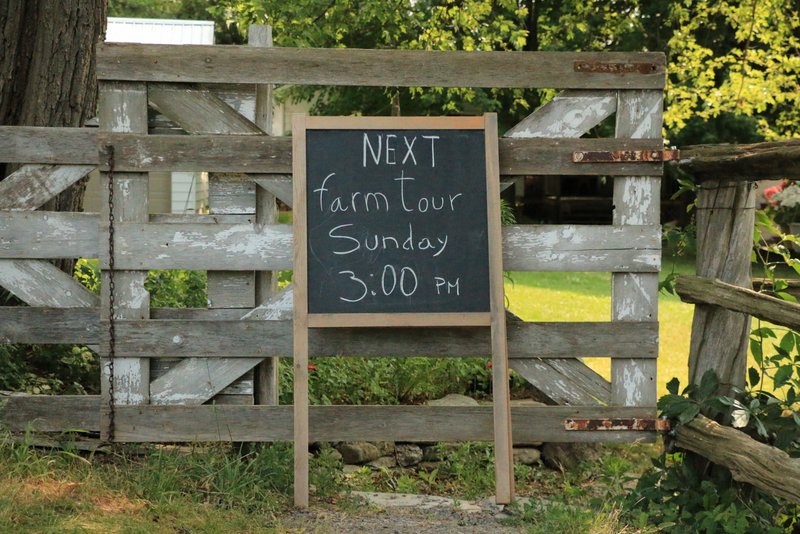 NEXT
farm tour
Sunday
3:00 PM